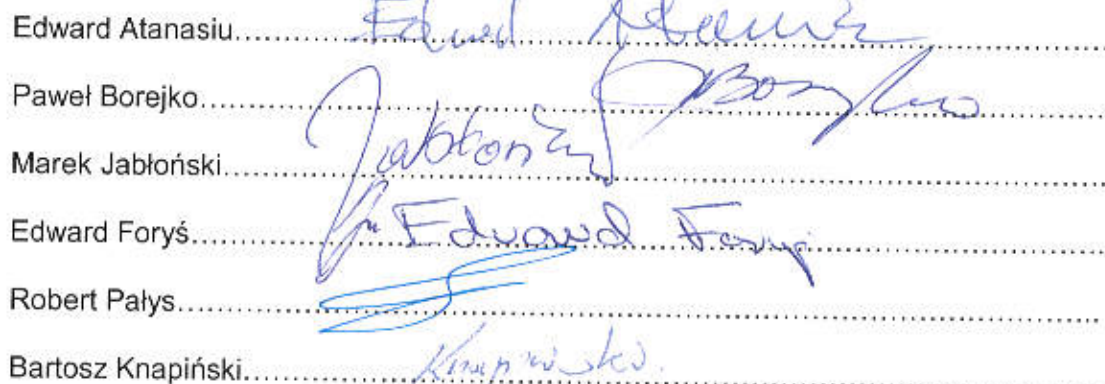 Edward Atanasiu.......... Edward Atanasiu
Paweł Borejko.......... Borejko
Marek Jabłoński.......... Jabłoński
Edward Foryś.......... Edward Foryś
Robert Pałys..........
Bartosz Knapiński.......... Knapiński